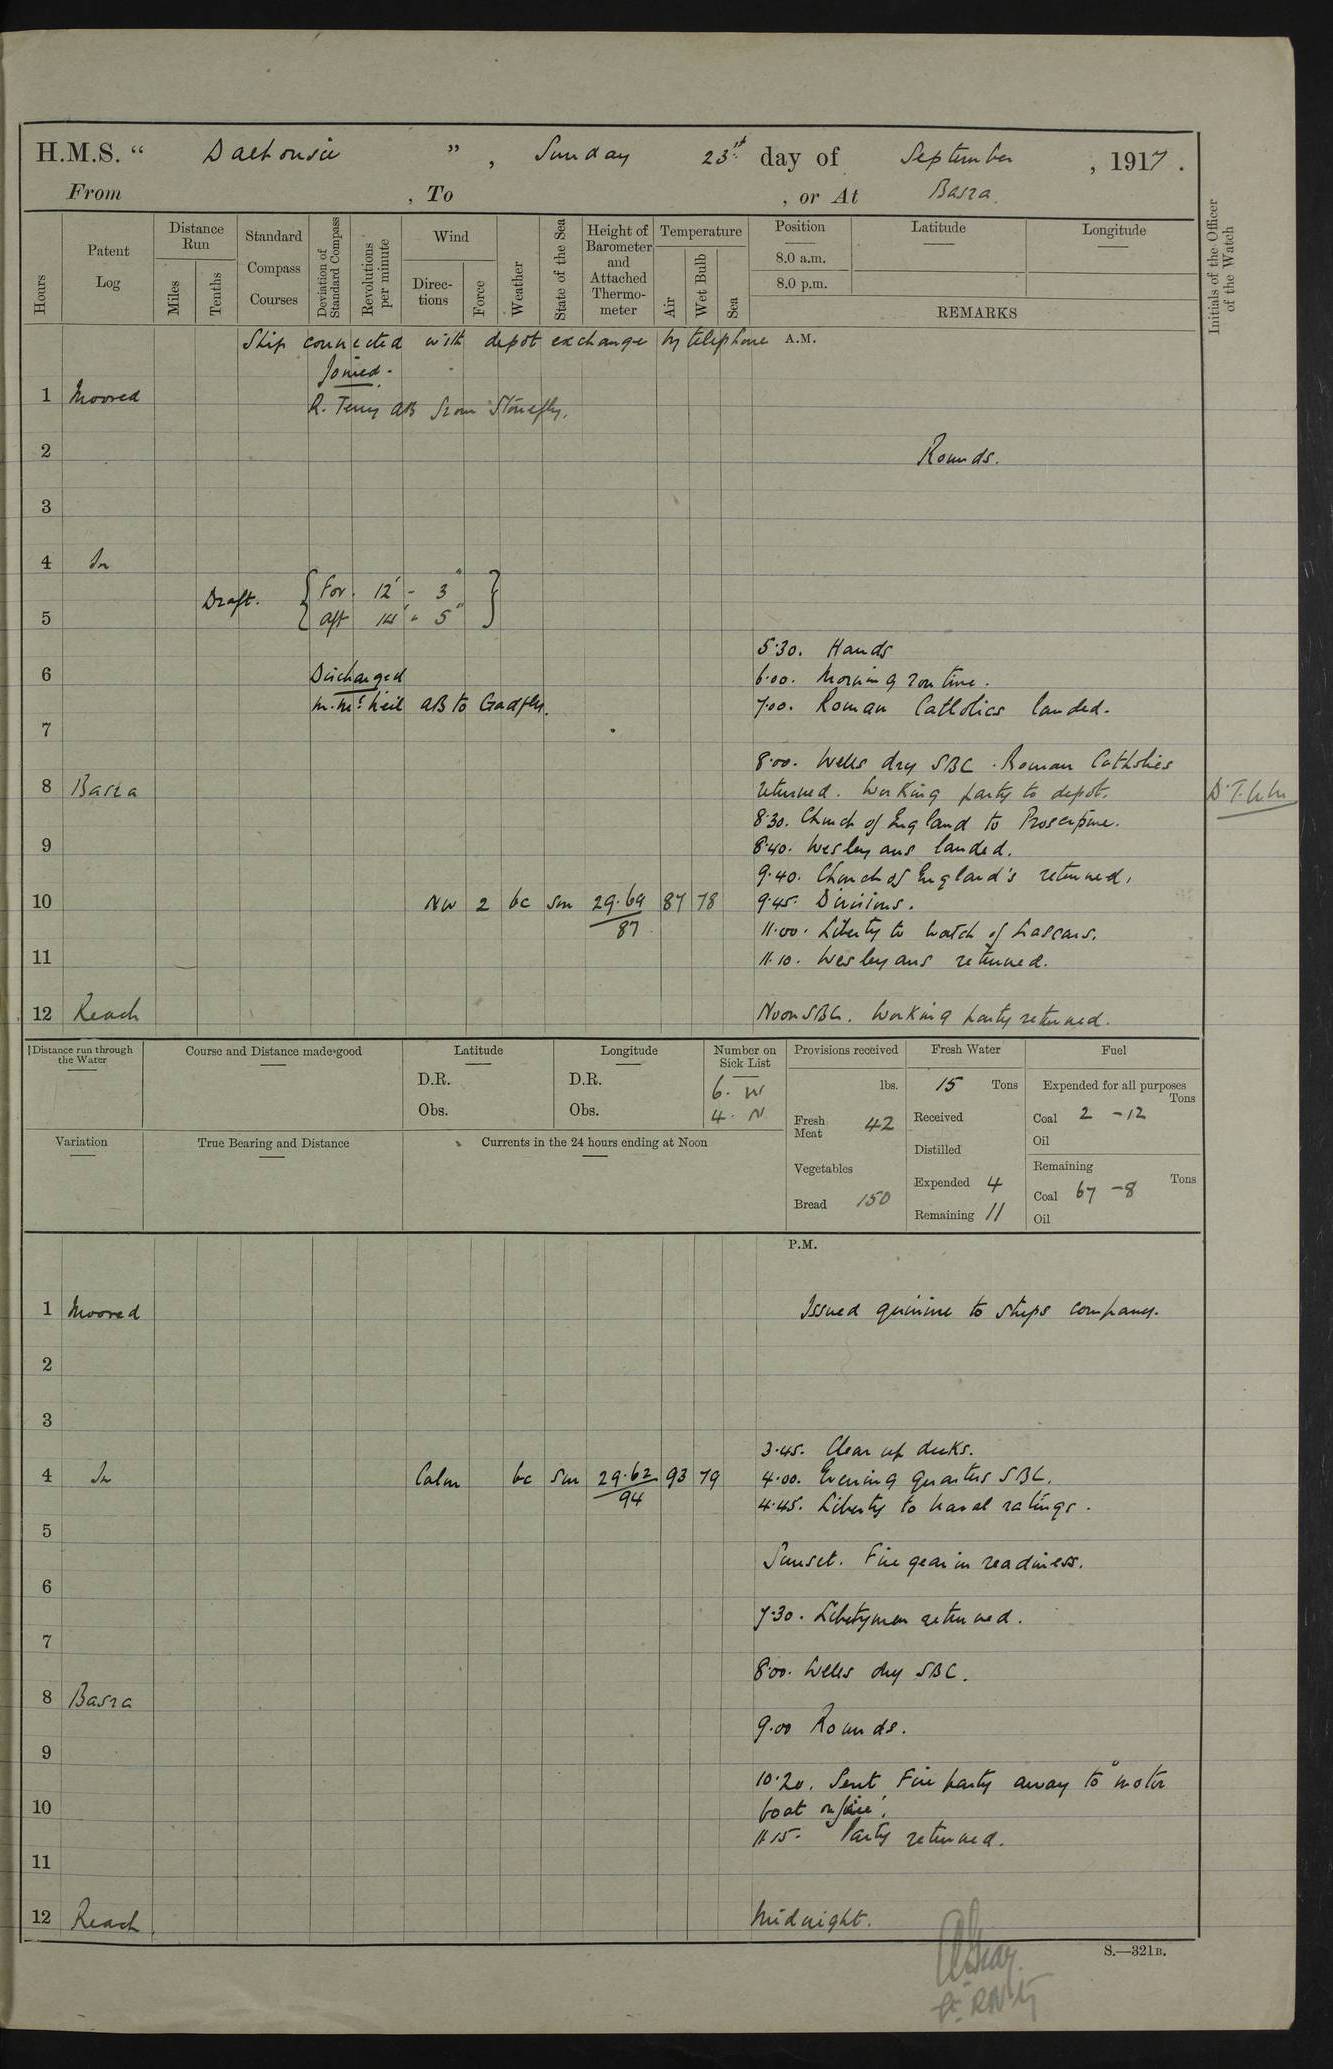 H.M.S. “ Dalhousie ” , Sunday 23rd day of September , 1917 .
From , To , or At Basra.
Hours
Patent Log
Distance Run
Miles
Tenths
Standard Compass Courses
Deviation of Standard Compass
Revolutions per minute
Wind
Direc-tions
Force
Weather
State of the Sea
Height of Barometer and Attached Thermo-meter
Temperature
Air
Wet Bulb
Sea
Position
8.0 a.m.
8.0 p.m.
Latitude
Longitude
REMARKS
Initials of the Officer of the Watch
Ship connected with depot exchange by telephone A.M.
Joined.
1 Moored
R. Terry AB from Stonefly.
2 Rounds.
3
4 In
Draft. { For. 12' - 3"
5 aft 14' - 5" }
5.30. Hands
6 Discharged 6.00. Morning routine.
M. McNeil AB to Gadfly. 7.00. Roman Catholics landed.
7
8.00. Wells dry SBC. Roman Catholics
8 Basra returned. Working party to depot.
8.30. Church of England to Proserpine.
9 8.40. Wesleyans landed.
9.40. Church of England's returned.
10 NW 2 bc sm 29.69 87 78 9.45. Divisions.
87 11.00. Liberty to watch of Lascars.
11 11.10. Wesleyans returned.
12 Reach Noon SBC. Working party returned.
Distance run through the Water
Course and Distance made good
Latitude
D.R.
Obs.
Longitude
D.R.
Obs.
Number on Sick List
6. W
4. N
Provisions received
lbs.
Fresh Meat 42
Vegetables
Bread 150
Fresh Water
15 Tons
Received
Distilled
Expended 4
Remaining 11
Fuel
Expended for all purposes
Tons
Coal 2 -12
Oil
Remaining
Tons
Coal 67 -8
Oil
Variation
True Bearing and Distance
Currents in the 24 hours ending at Noon
P.M.
1 Moored Issued quinine to ships company.
2
3
3.45. Clear up decks.
4 In Calm bc sm 29.62 93 79 4.00. Evening quarters SBC.
94 4.45. Liberty to naval ratings.
5
Sunset. Fire gear in readiness.
6
7.30. Libertymen returned.
7
8.00. Wells dry SBC.
8 Basra
9.00 Rounds.
9
10.20. Sent Fire party away to "motor
10 boat on fire".
11.15. Party returned.
11
12 Reach Midnight.
S.—321B.